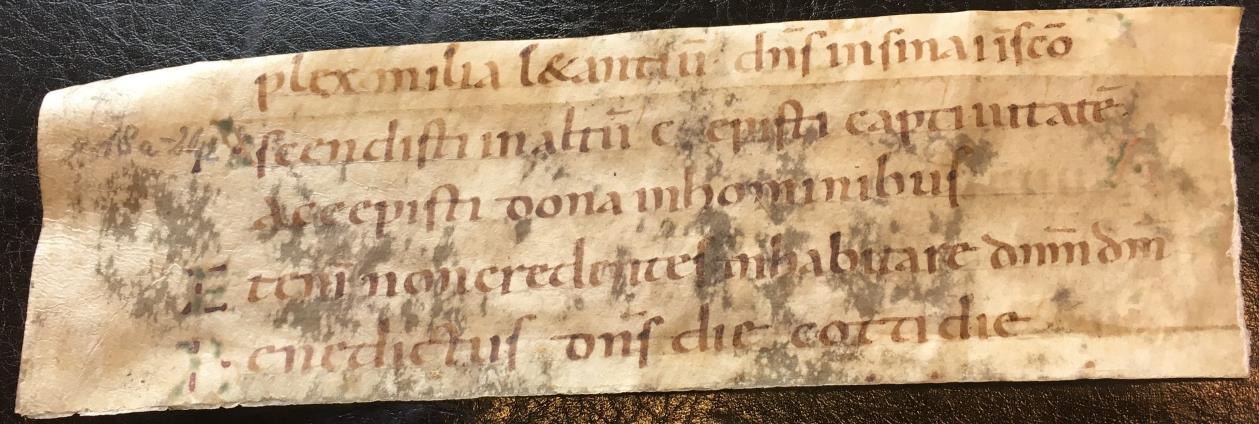 plex milia l&antiū dn̄s insina insc̄o
scendisti inaltū c episti captiuitatē
Accepisti dona inhominibus
Eteni noncredentes inhabitare dnm̄ dm̄
Benedictus dn̄s die cottidie